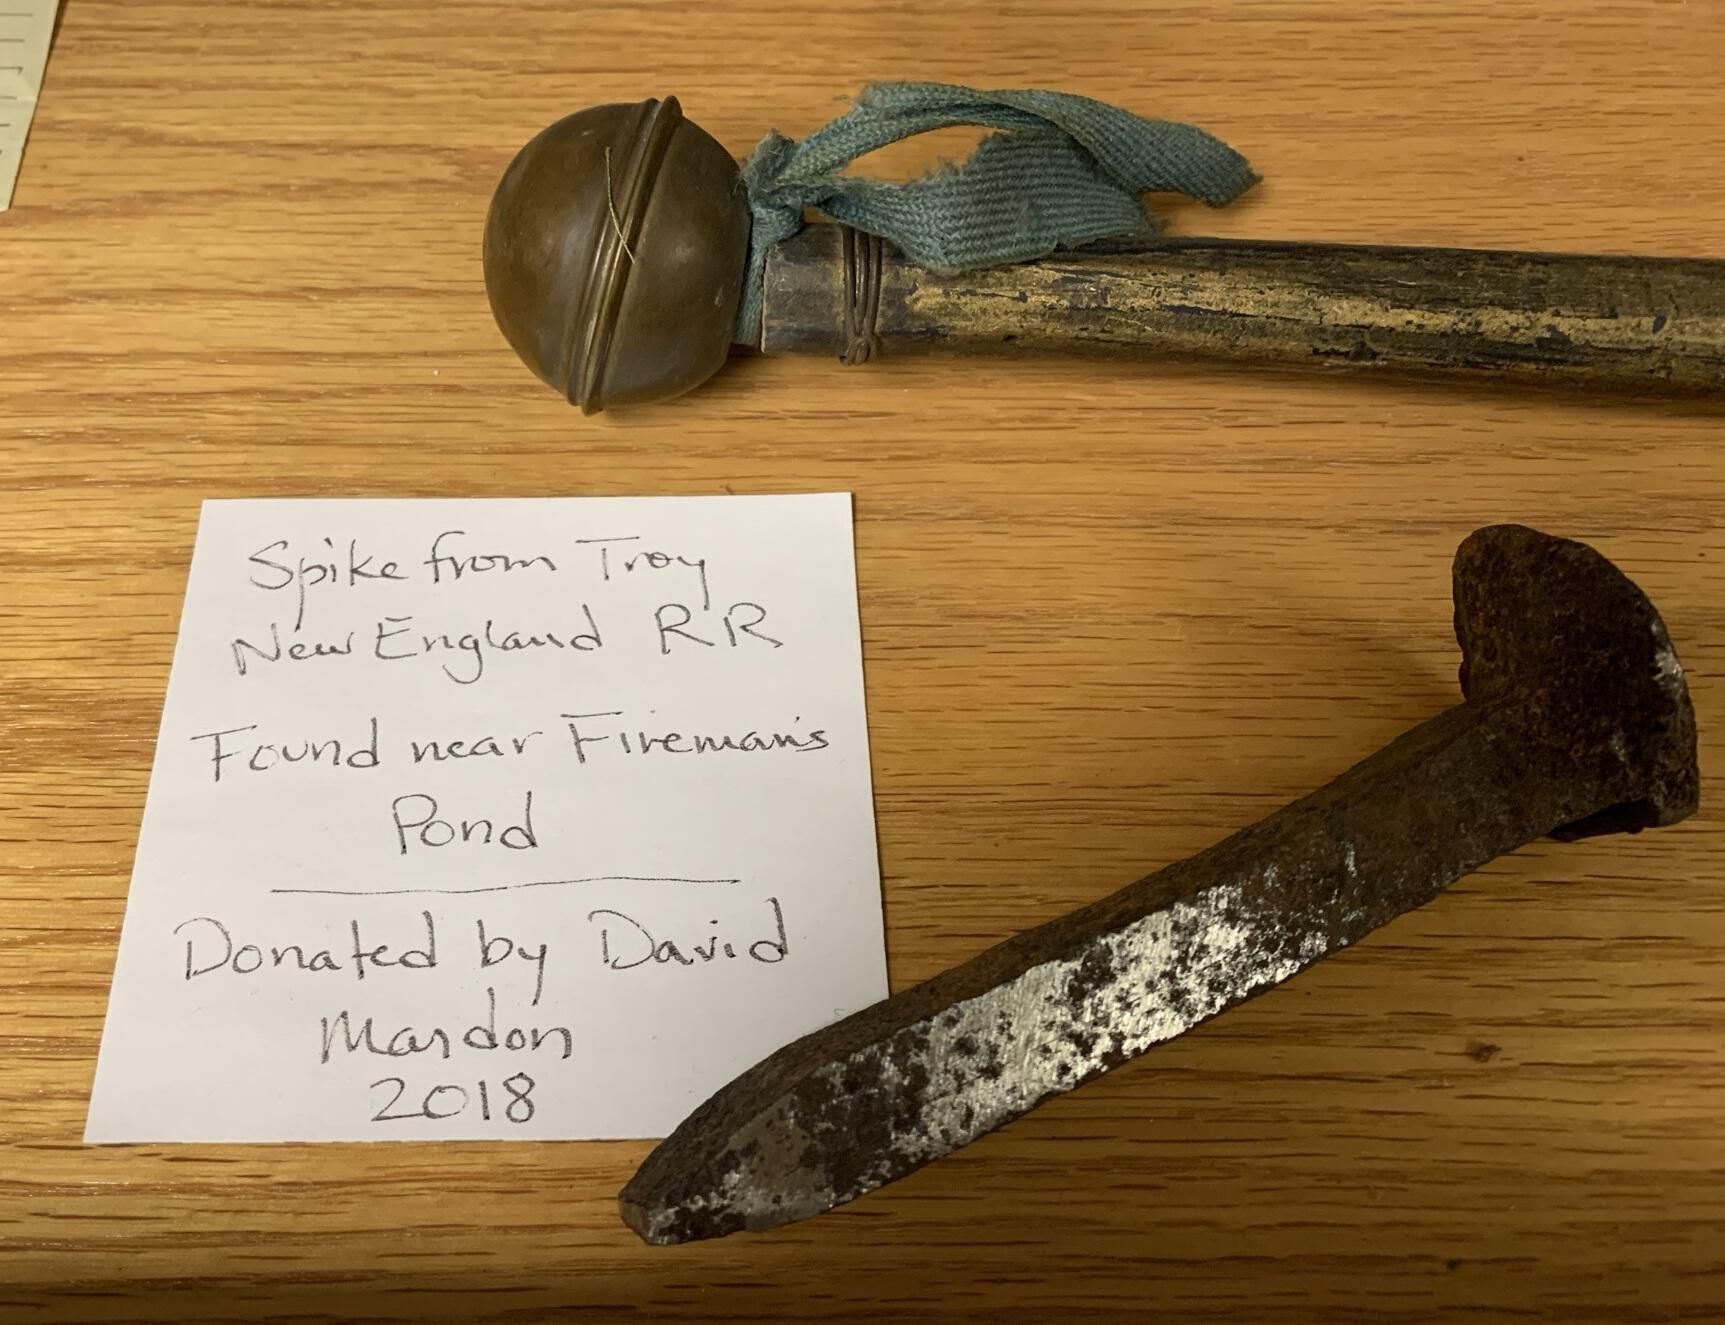 Spike from Troy
New England RR
Found near Fireman's
Pond
Donated by David
Mardon
2018